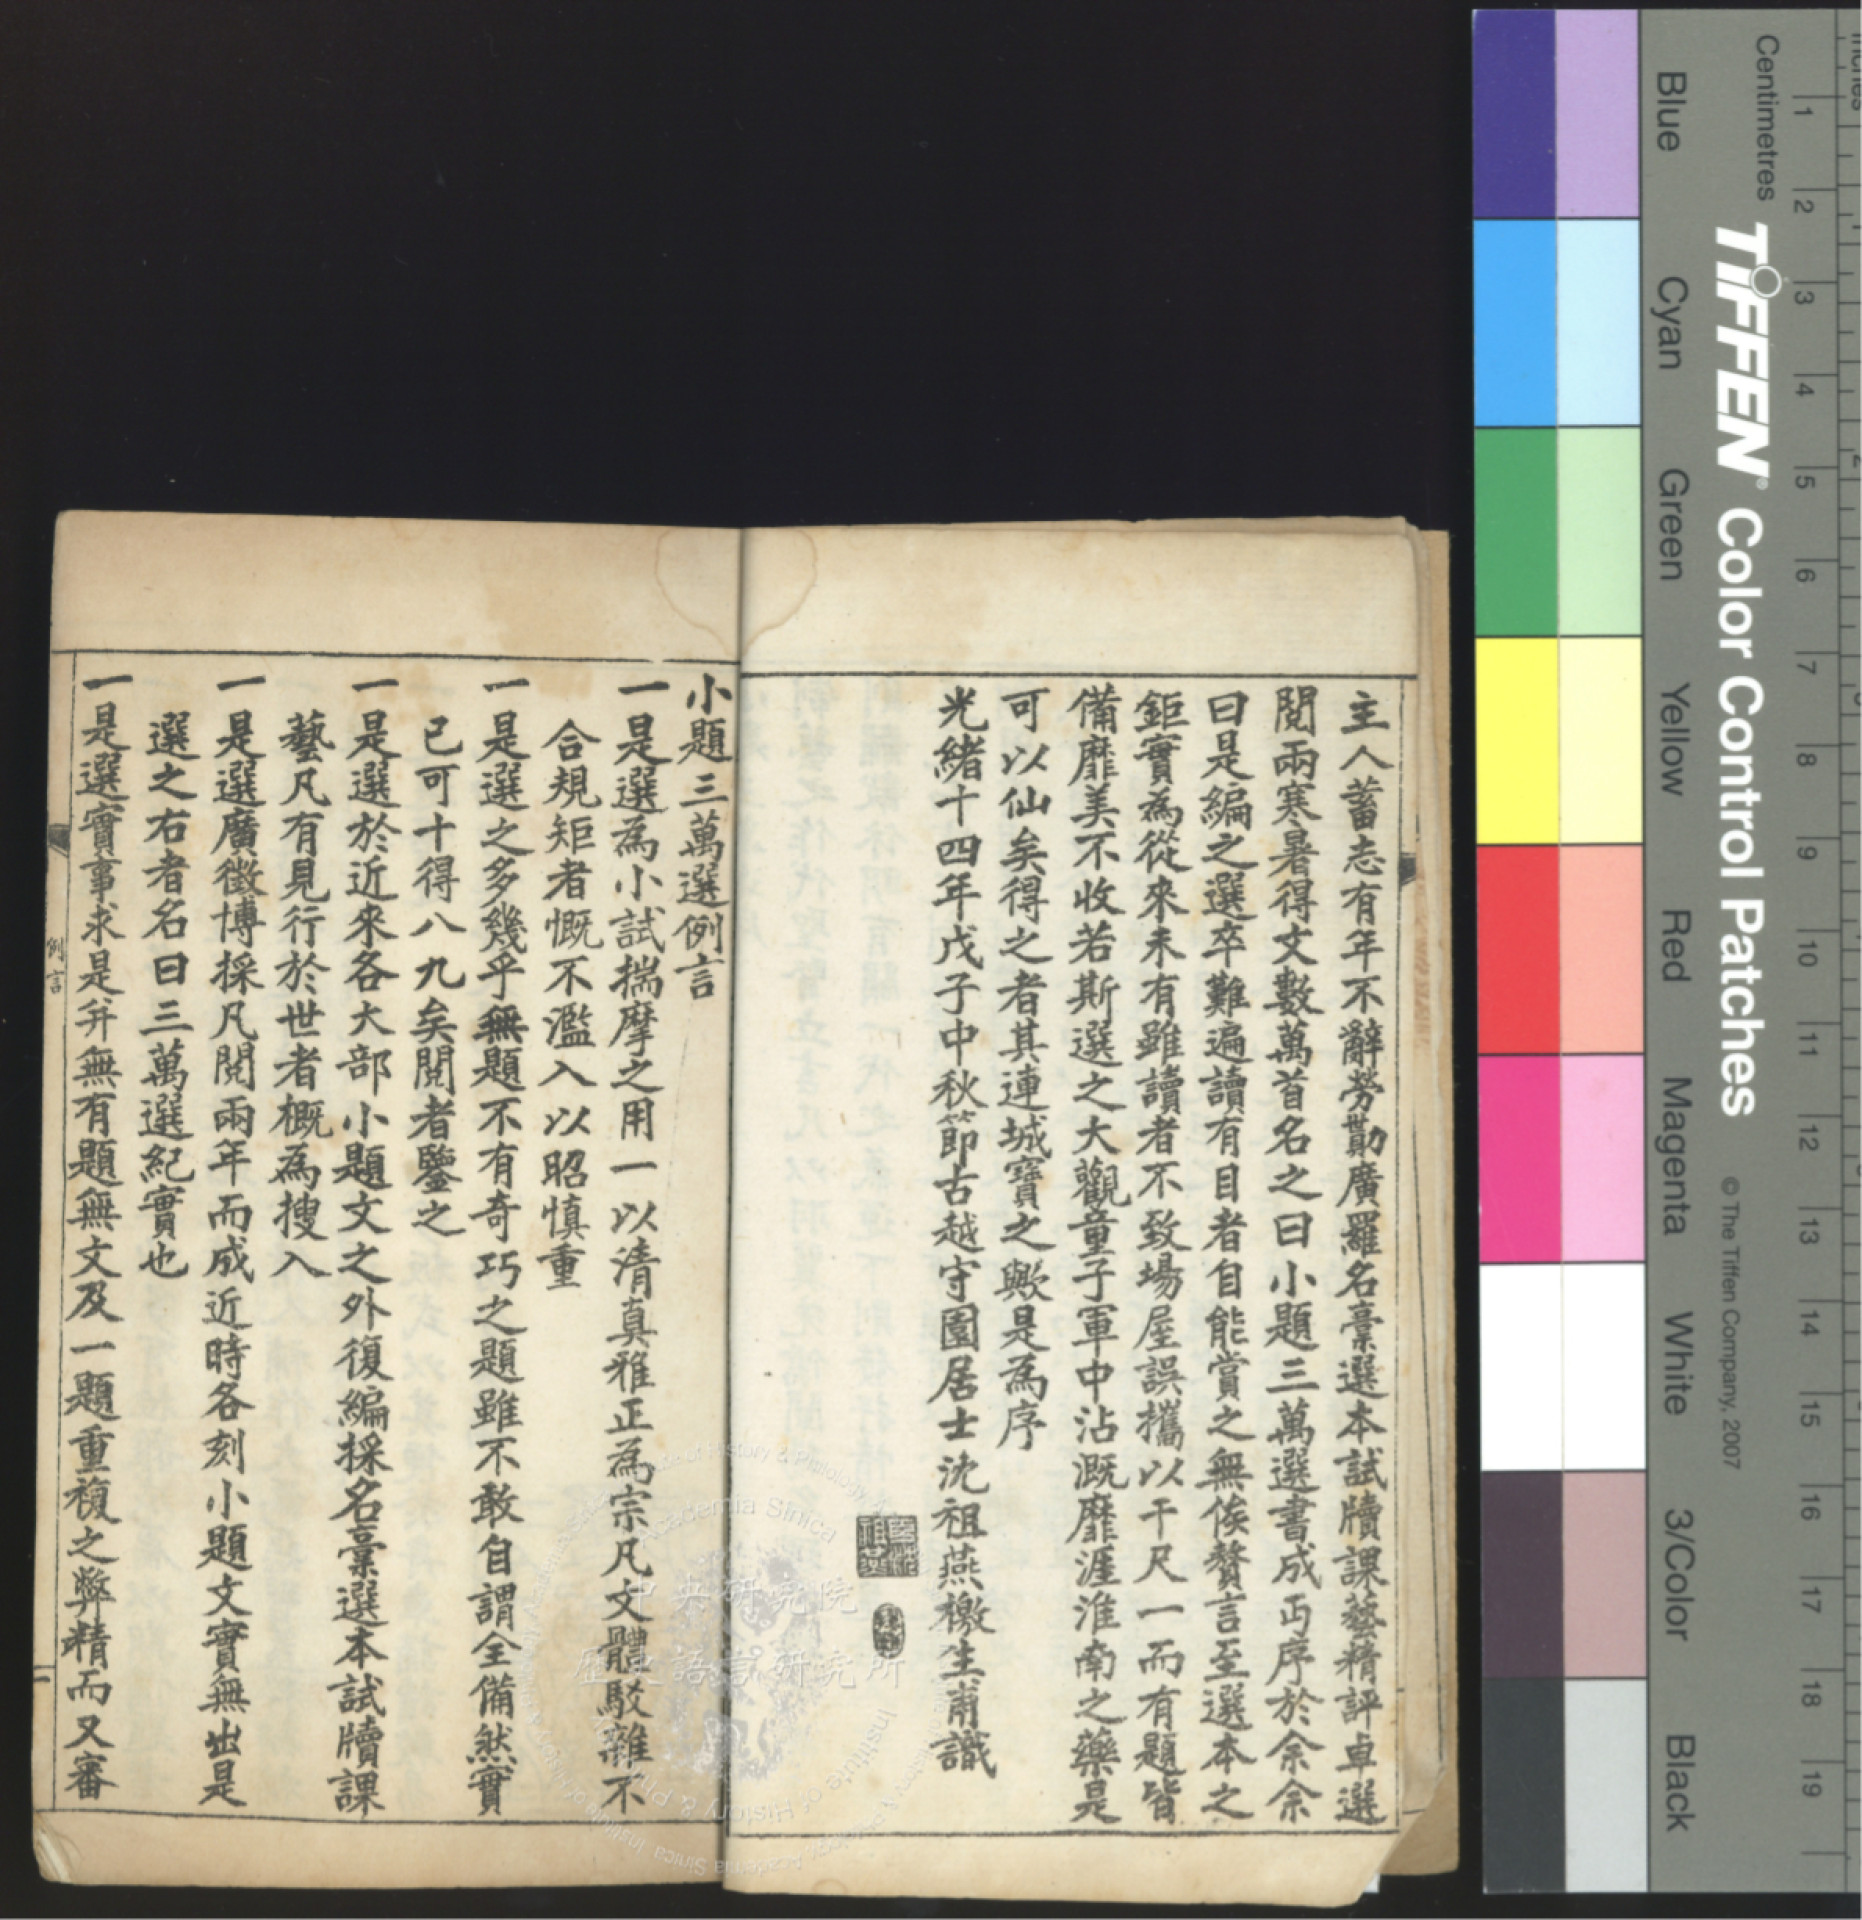 主人蓄志有年不辭勞勩廣羅名稾選本試牘課藝精評卓選
閱兩寒暑得文數萬首名之曰小題三萬選書成丏序於余余
曰是編之選卒難遍讀有目者自能賞之無俟贅言至選本之
鉅實為從來未有雖讀者不致場屋誤攜以干尺一而有題皆
備靡美不收若斯選之大觀童子軍中沾溉靡涯淮南之藥是
可以仙矣得之者其連城寶之歟是為序
光緒十四年戊子中秋節古越守園居士沈祖燕檄生甫識
小題三萬選例言
一是選為小試揣摩之用一以清真雅正為宗凡文體駁雜不
合規矩者慨不濫入以昭慎重
一是選之多幾乎無題不有奇巧之題雖不敢自謂全備然實
已可十得八九矣閱者鑒之
一是選於近來各大部小題文之外復編採名稾選本試牘課
藝凡有見行於世者概為搜入
一是選廣徵博採凡閱兩年而成近時各刻小題文實無出是
選之右者名曰三萬選紀實也
一是選實事求是并無有題無文及一題重複之弊精而又審
例言
一
中央研究院
歷史語言研究所
Academia Sinica
Institute of History & Philology
Centimetres
inches
1 2 3 4 5 6 7 8 9 10 11 12 13 14 15 16 17 18 19
TIFFEN® Color Control Patches
© The Tiffen Company, 2007
Blue Cyan Green Yellow Red Magenta White 3/Color Black